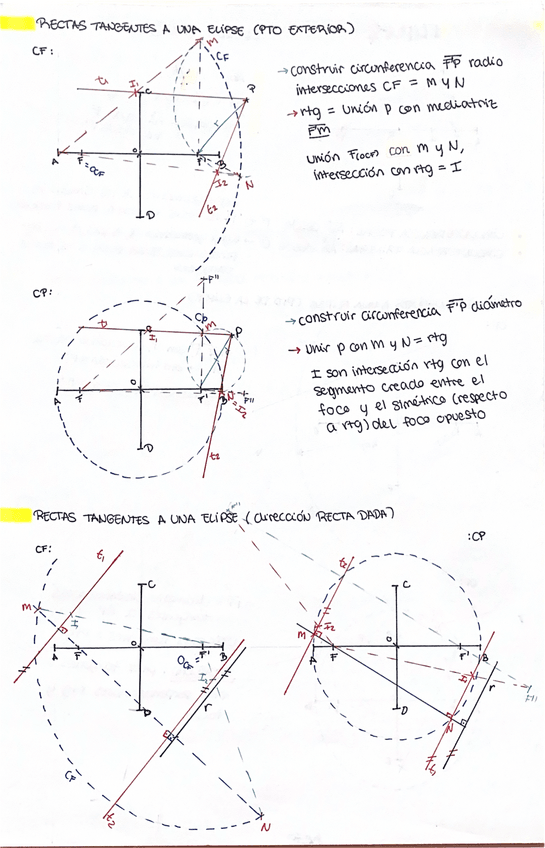 RECTAS TANGENTES A UNA ELIPSE (PTO EXTERIOR)
CF:
M
CF
t1
I1
C
P
r
A
F
=OCF
O
F'
B
I2
N
t2
D
→ construir circunferencia F'P radio
intersecciones CF = M y N
→ rtg = Unión P con mediatriz
F'M
Unión F(OCF) con M y N,
intersección con rtg = I
CP:
F''
CP
t1
C
I1
M
P
A
F
O
F'
B
N=I2
F''
D
t2
→ construir circunferencia F'P diámetro
→ unir P con M y N = rtg
I son intersección rtg con el
segmento creado entre el
foco y el simétrico (respecto
a rtg) del foco opuesto
RECTAS TANGENTES A UNA ELIPSE (dirección RECTA DADA)
CF:
t1
C
M
I
A
F
O
F'
B
OCF=
I2
r
D
CF
t2
N
:CP
F''
t2
C
M
I2
A
F
O
F'
B
I1
r
F''
D
N
t1